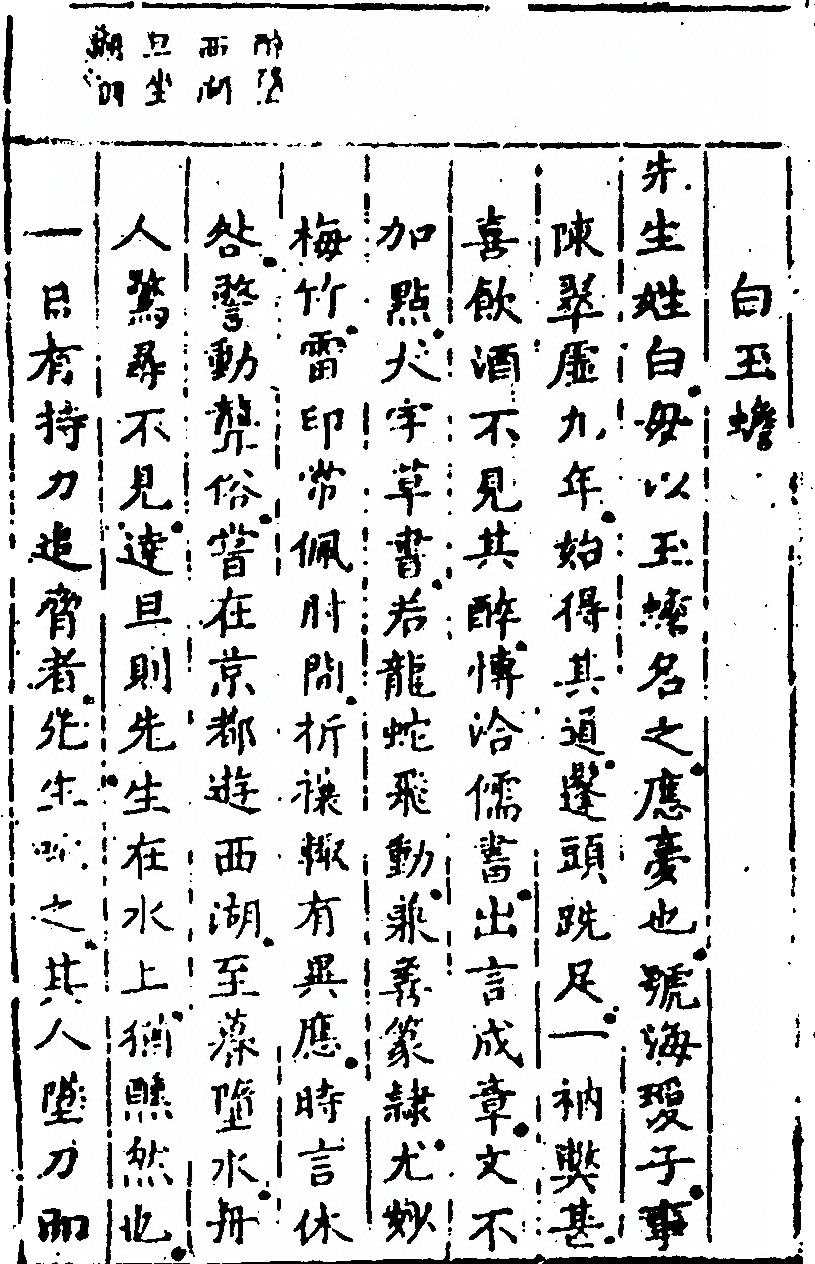 醉墮
西湖
旦坐
湖
白玉蟾
先生姓白母以玉蟾名之應夢也號海瓊子事
陳翠虛九年始得其道蓬頭跣足一衲弊甚
喜飲酒不見其醉博洽儒書出言成章文不
加點大字草書若龍蛇飛動兼善篆隸尤妙
梅竹雷印常佩肘間祈禳輒有異應時言休
咎警動聾俗嘗在京都遊西湖至暮墮水舟
人驚尋不見達旦則先生在水上猶醺然也
一日有持刀追脅者先生叱之其人墜刀而